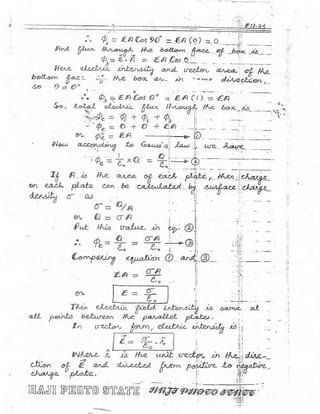 P.12-24
∴ φ₂ = EA Cos 90° = EA (0) = 0
And flux through the bottom face of box is
φ₃ = E⃗·A⃗ = EA Cos θ
Here electric intensity and vector area of the
bottom face of the box are in same direction,
so θ = 0°
∴ φ₃ = EA Cos 0° = EA (1) = EA
So, total electric flux through the box is
φₑ = φ₁ + φ₂ + φ₃
φₑ = 0 + 0 + EA
or φₑ = EA ①
Now according to Gauss's law, we have
φₑ = 1/ε₀ × Q = Q/ε₀ ②
If A is the area of each plate, then charge
on each plate can be calculated by surface charge
density σ as
σ = Q/A
or Q = σA
Put this value in eq. ②
∴ φₑ = Q/ε₀ = σA/ε₀ ③
Comparing equation ① and ③
EA = σA/ε₀
or E = σ/ε₀
This electric field intensity is same at
all points between the parallel plates.
In vector form, electric intensity is
E⃗ = σ/ε₀ · r̂
Where r̂ is the unit vector in the dire-
ction of E⃗ and directed from positive to negative
charge plate.
HAJI PHOTO STATE HAJI PHOTO STATE